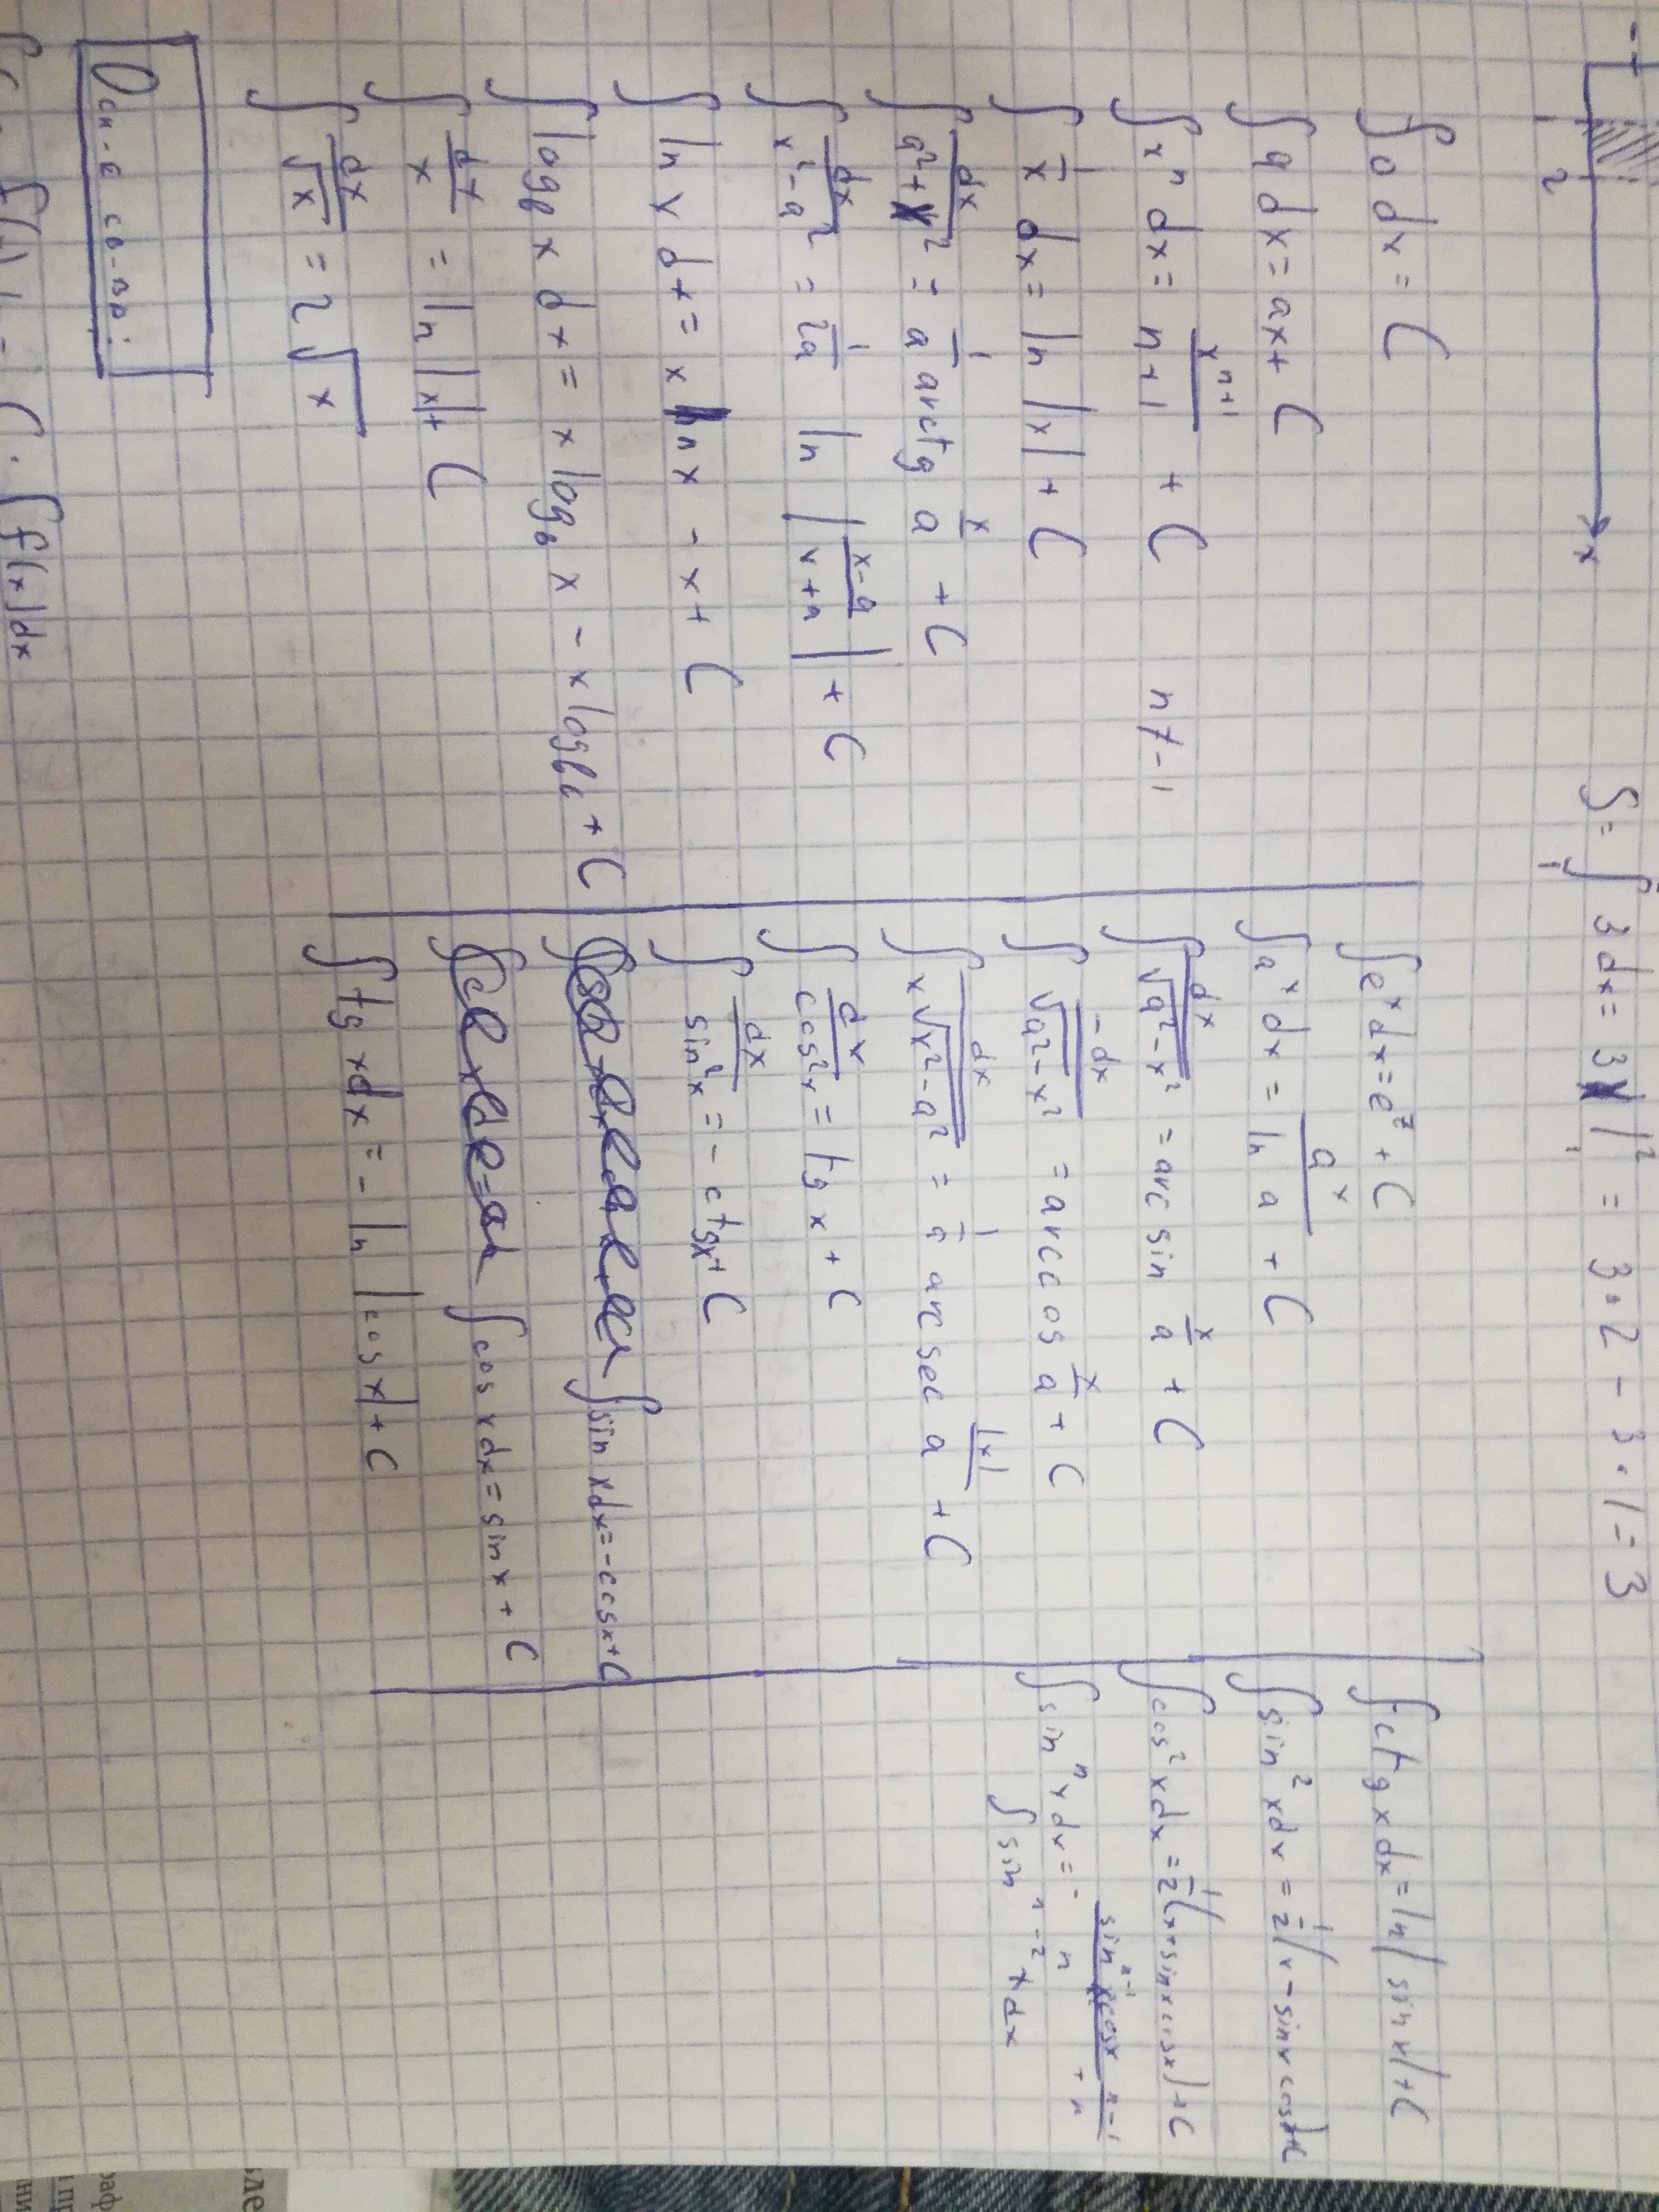 1 2 x
S = ∫₁ 3dx = 3x|₁² = 3·2 - 3·1 = 3
∫0 dx = C
∫a dx = ax + C
∫xⁿ dx = xⁿ⁺¹/n+1 + C n≠-1
∫1/x dx = ln|x| + C
∫dx/a²+x² = 1/a arctg x/a + C
∫dx/x²-a² = 1/2a ln|x-a/x+a| + C
∫ln x dx = x ln x - x + C
∫log b x dx = x log_b x - x log b e + C
∫dx/x = ln|x| + C
∫dx/√x = 2√x
∫eˣdx = eᶻ + C
∫aˣdx = aˣ/ln a + C
∫dx/√a²-x² = arc sin x/a + C
∫-dx/√a²-x² = arccos x/a + C
∫dx/x√x²-a² = 1/a arcsec |x|/a + C
∫dx/cos²x = tg x + C
∫dx/sin²x = - ctgx + C
∫sin xdx = -cosx + C
∫cos xdx = sin x + C
∫tg xdx = - ln|cos x| + C
∫ctg x dx = ln|sin x| + C
∫sin² xdx = 1/2(x - sinx cosx) + C
∫cos² xdx = 1/2(x + sinx cosx) + C
∫sinⁿ xdx = - sinⁿ⁻¹x cosx/n + n-1/n
∫sin ⁿ⁻² x dx
Осн-е св-ва:
C · ∫f(x)dx